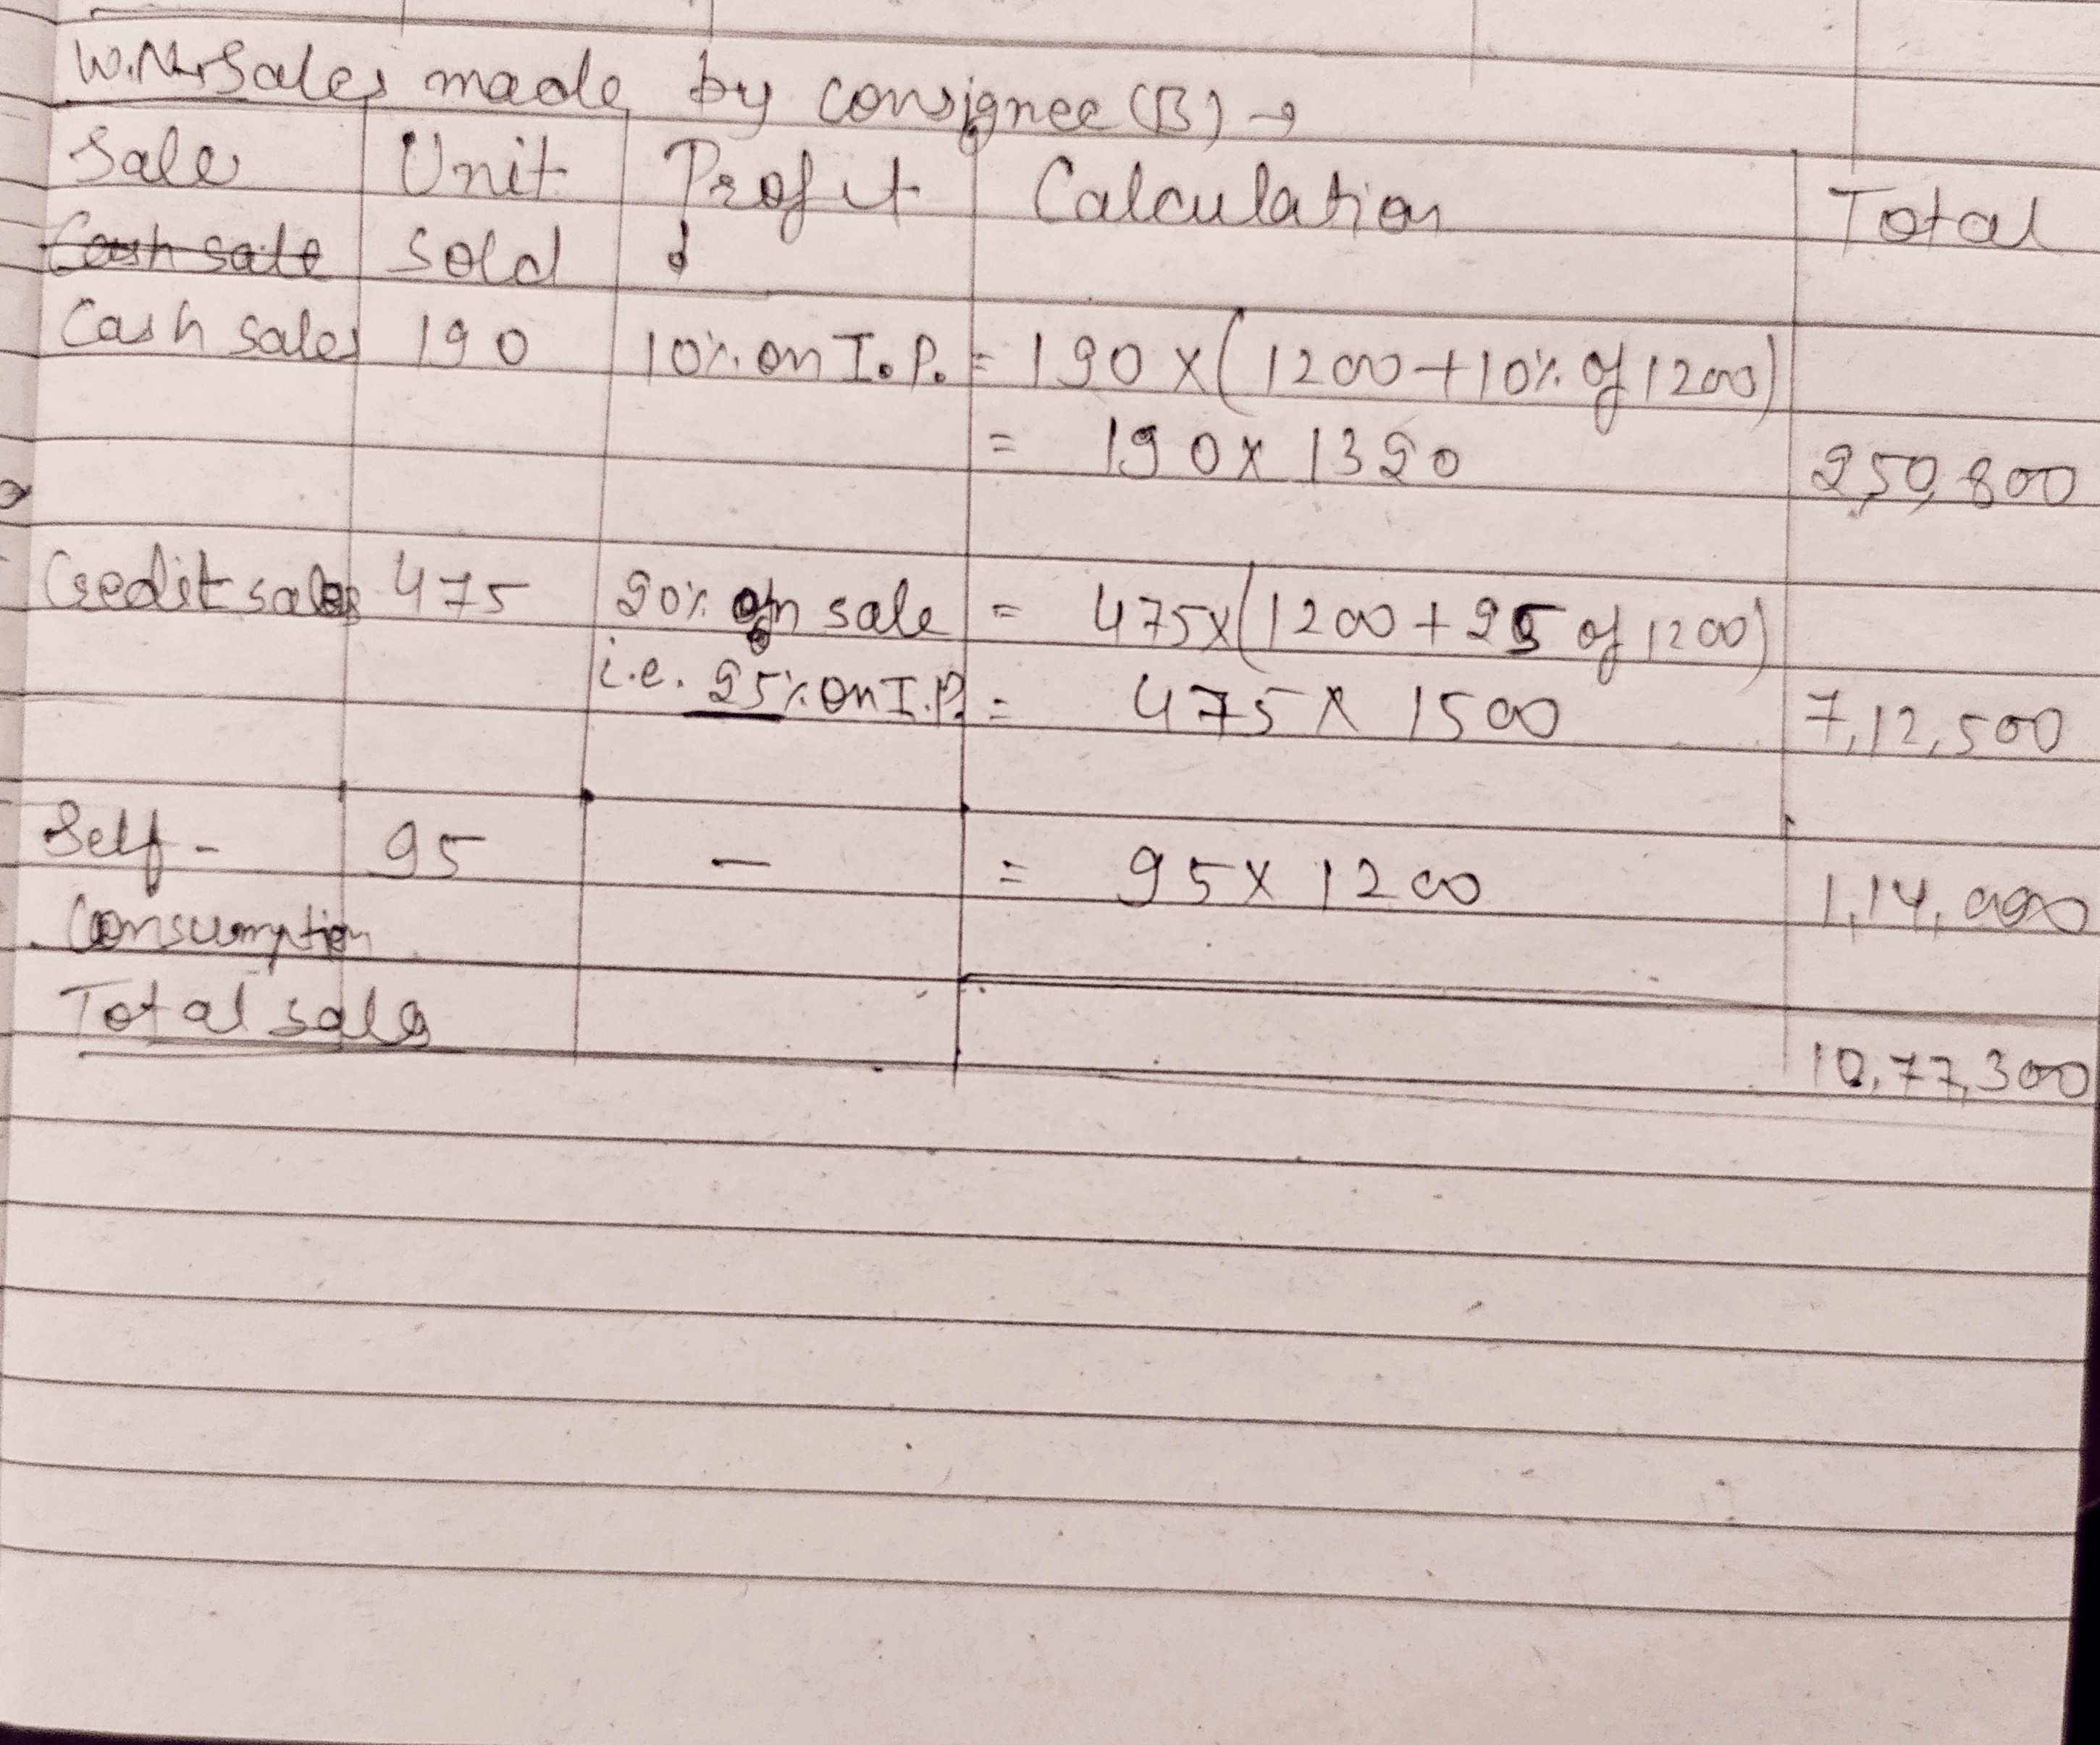 W.N. Sales made by consignee (B) →
Sale Unit Profit Calculation Total
Cash sale Sold
Cash sales 190 10% on I.P. = 190 x (1200 + 10% of 1200)
= 190 x 1320 2,50,800
Credit sales 475 20% on sale = 475 x (1200 + 25 of 1200)
i.e. 25% on I.P. = 475 x 1500 7,12,500
Self- 95 - = 95 x 1200 1,14,000
Consumption
Total sale 10,77,300